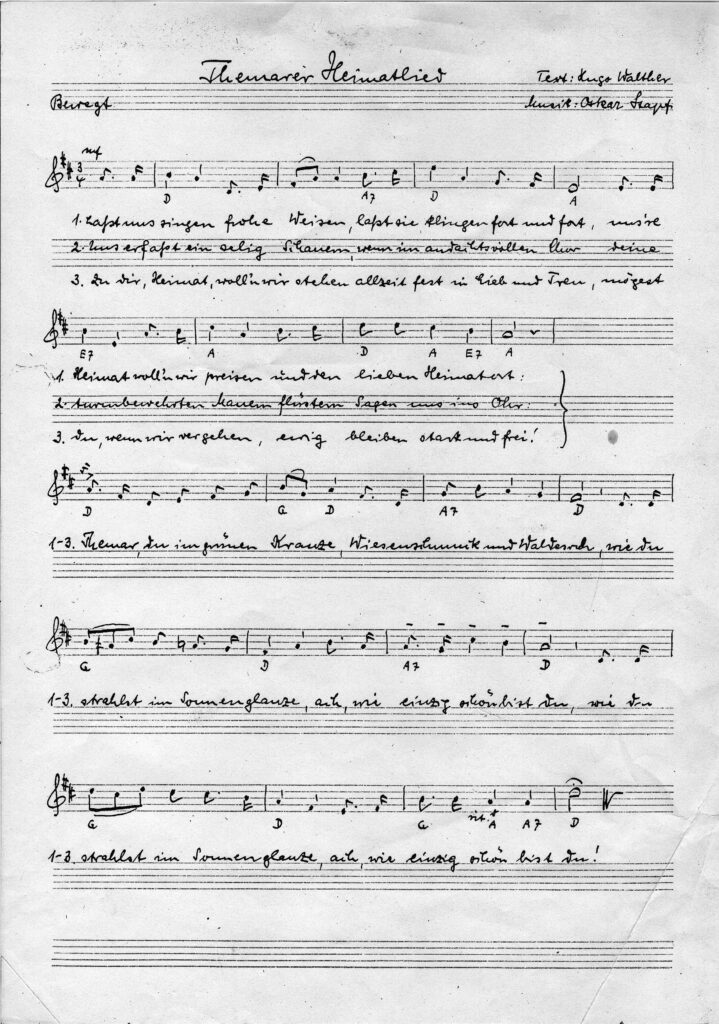 Themarer Heimatlied
Text: Hugo Walther
Bewegt
Musik: Oskar Stapf
mf
D A7 D A
1. Laßt uns singen frohe Weisen, laßt sie klingen fort und fort, uns're
2. Uns erfaßt ein selig Schauern, wenn im andachtsvollen Chor deine
3. Zu dir, Heimat, woll'n wir stehen allzeit fest in Lieb und Treu, mögest
E7 A D A E7 A
1. Heimat woll'n wir preisen und den lieben Heimatort:
2. turmbewehrten Mauern flüstern Sagen uns ins Ohr:
3. du, wenn wir vergehen, ewig bleiben stark und frei!
f
D G D A7 D
1-3. Themar, du im grünen Kranze, Wiesenschmuck und Waldesruh, wie du
G D A7 D
1-3. strahlst im Sonnenglanze, ach, wie einzig schön bist du, wie du
rit.
G D G A A7 D
1-3. strahlst im Sonnenglanze, ach, wie einzig schön bist du!